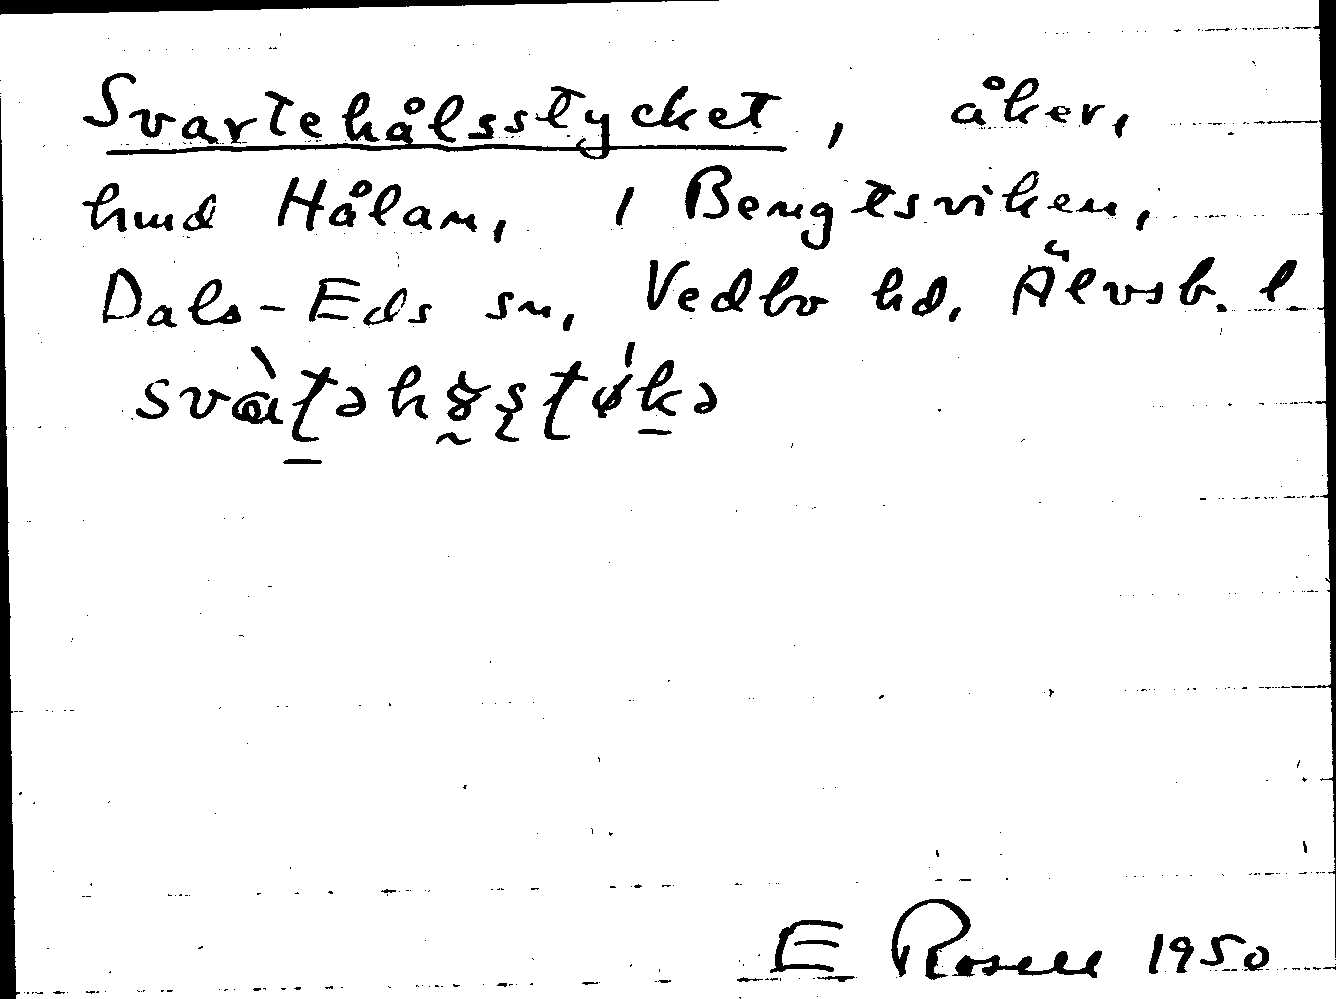 Svartehålsstycket, åker,
hmd Hålan, 1 Bengtsviken,
Dals-Eds sn, Vedbo hd. Älvsb. l.
E Rosell 1950